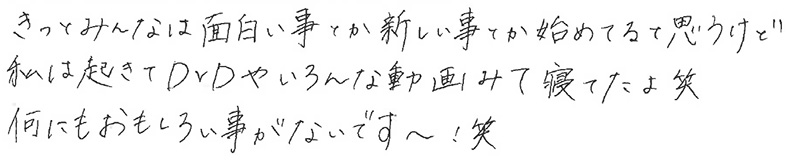 きっとみんなは面白い事とか新しい事とか始めてるて思うけど
私は起きてDVDやいろんな動画みて寝てたよ笑
何にもおもしろい事がないです〜！笑